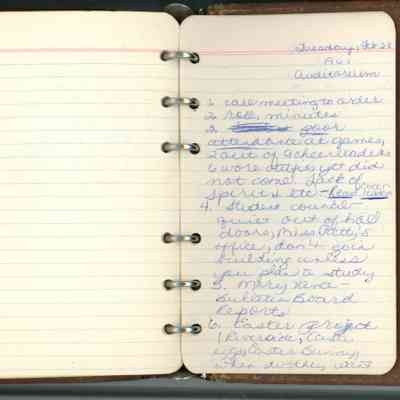 Tuesday, Feb 28
A61
Auditorium
1. call meeting to order
2. Roll, minutes
3. poor
attendance at games,
2 out of 9 cheerleaders
6 wore
not come. Lack of
Spirit etc -
4. Student council -
quiet out of hall
doors, Miss
office, don't go in
building unless
you plan to study
5. Mary Lena -
Bulletin Board
Reports
6. Easter project
(Riverside, Easter
eggs, Easter Bunny,
when do they want